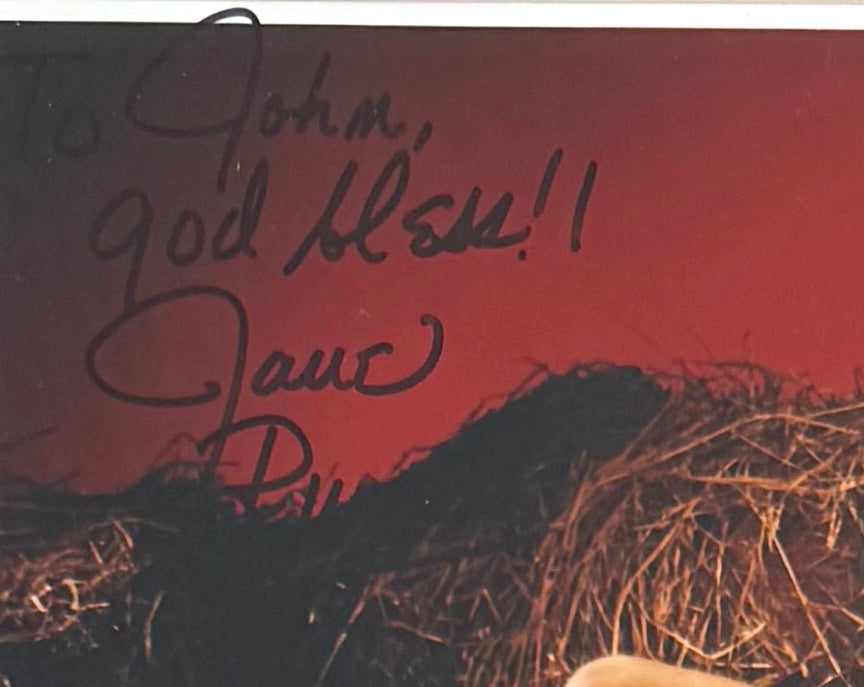 To John,
god bless!!
Jane